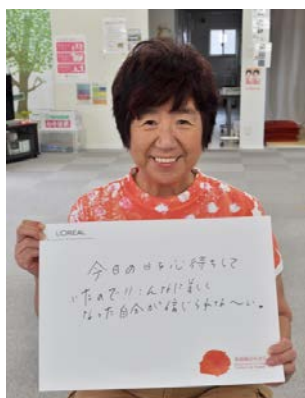 L'OREAL
今日の日を心待ちして
いたので!!こんなに美しく
なった自分が信じられな〜い。